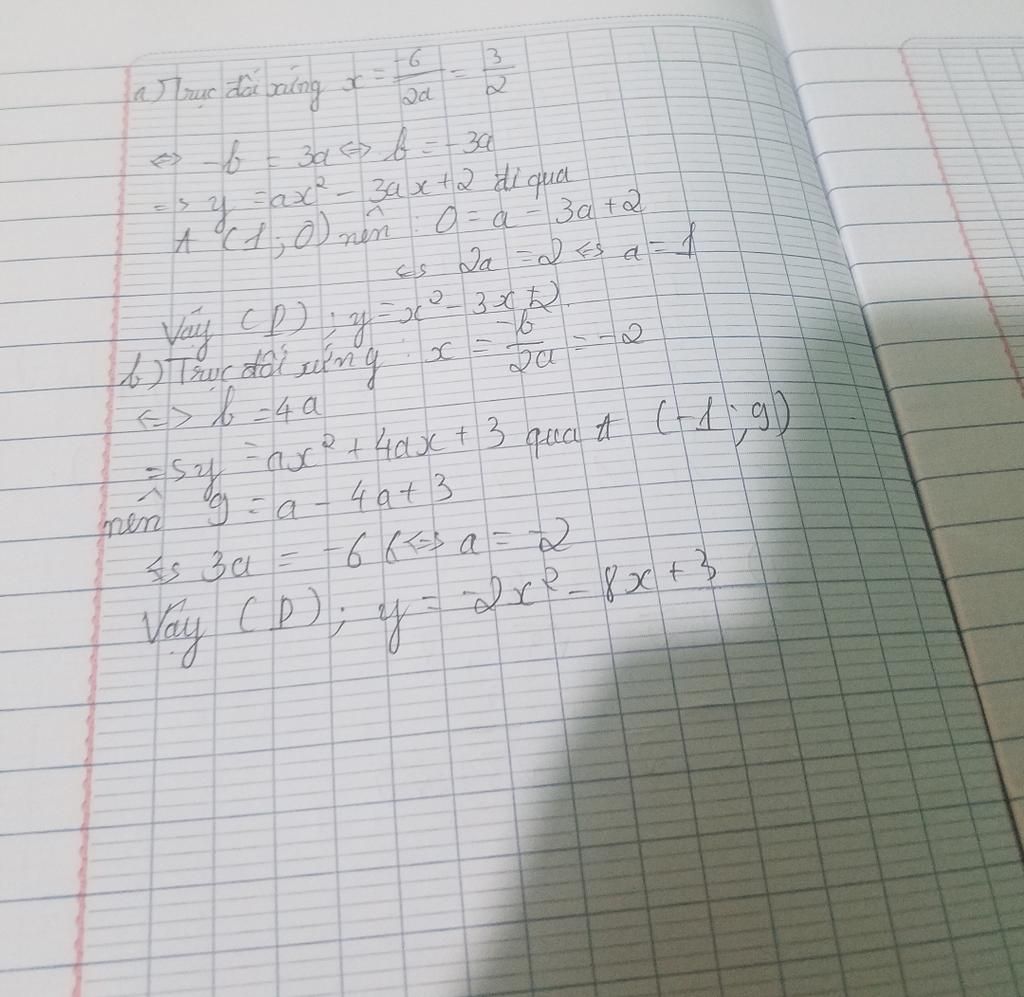 a) Trục đối xứng x = -b/2a = 3/2
<=> -b = 3a <=> b = -3a
=> y = ax² - 3ax + 2 đi qua
A (1; 0) nên: 0 = a - 3a + 2
<=> 2a = 2 <=> a = 1
Vậy (P); y = x² - 3x + 2.
b) Trục đối xứng: x = -b/2a = -2
<=> b = 4a
=> y = ax² + 4ax + 3 qua A (-1; 9)
nên 9 = a - 4a + 3
<=> 3a = -6 <=> a = -2
Vậy (P); y = -2x² - 8x + 3